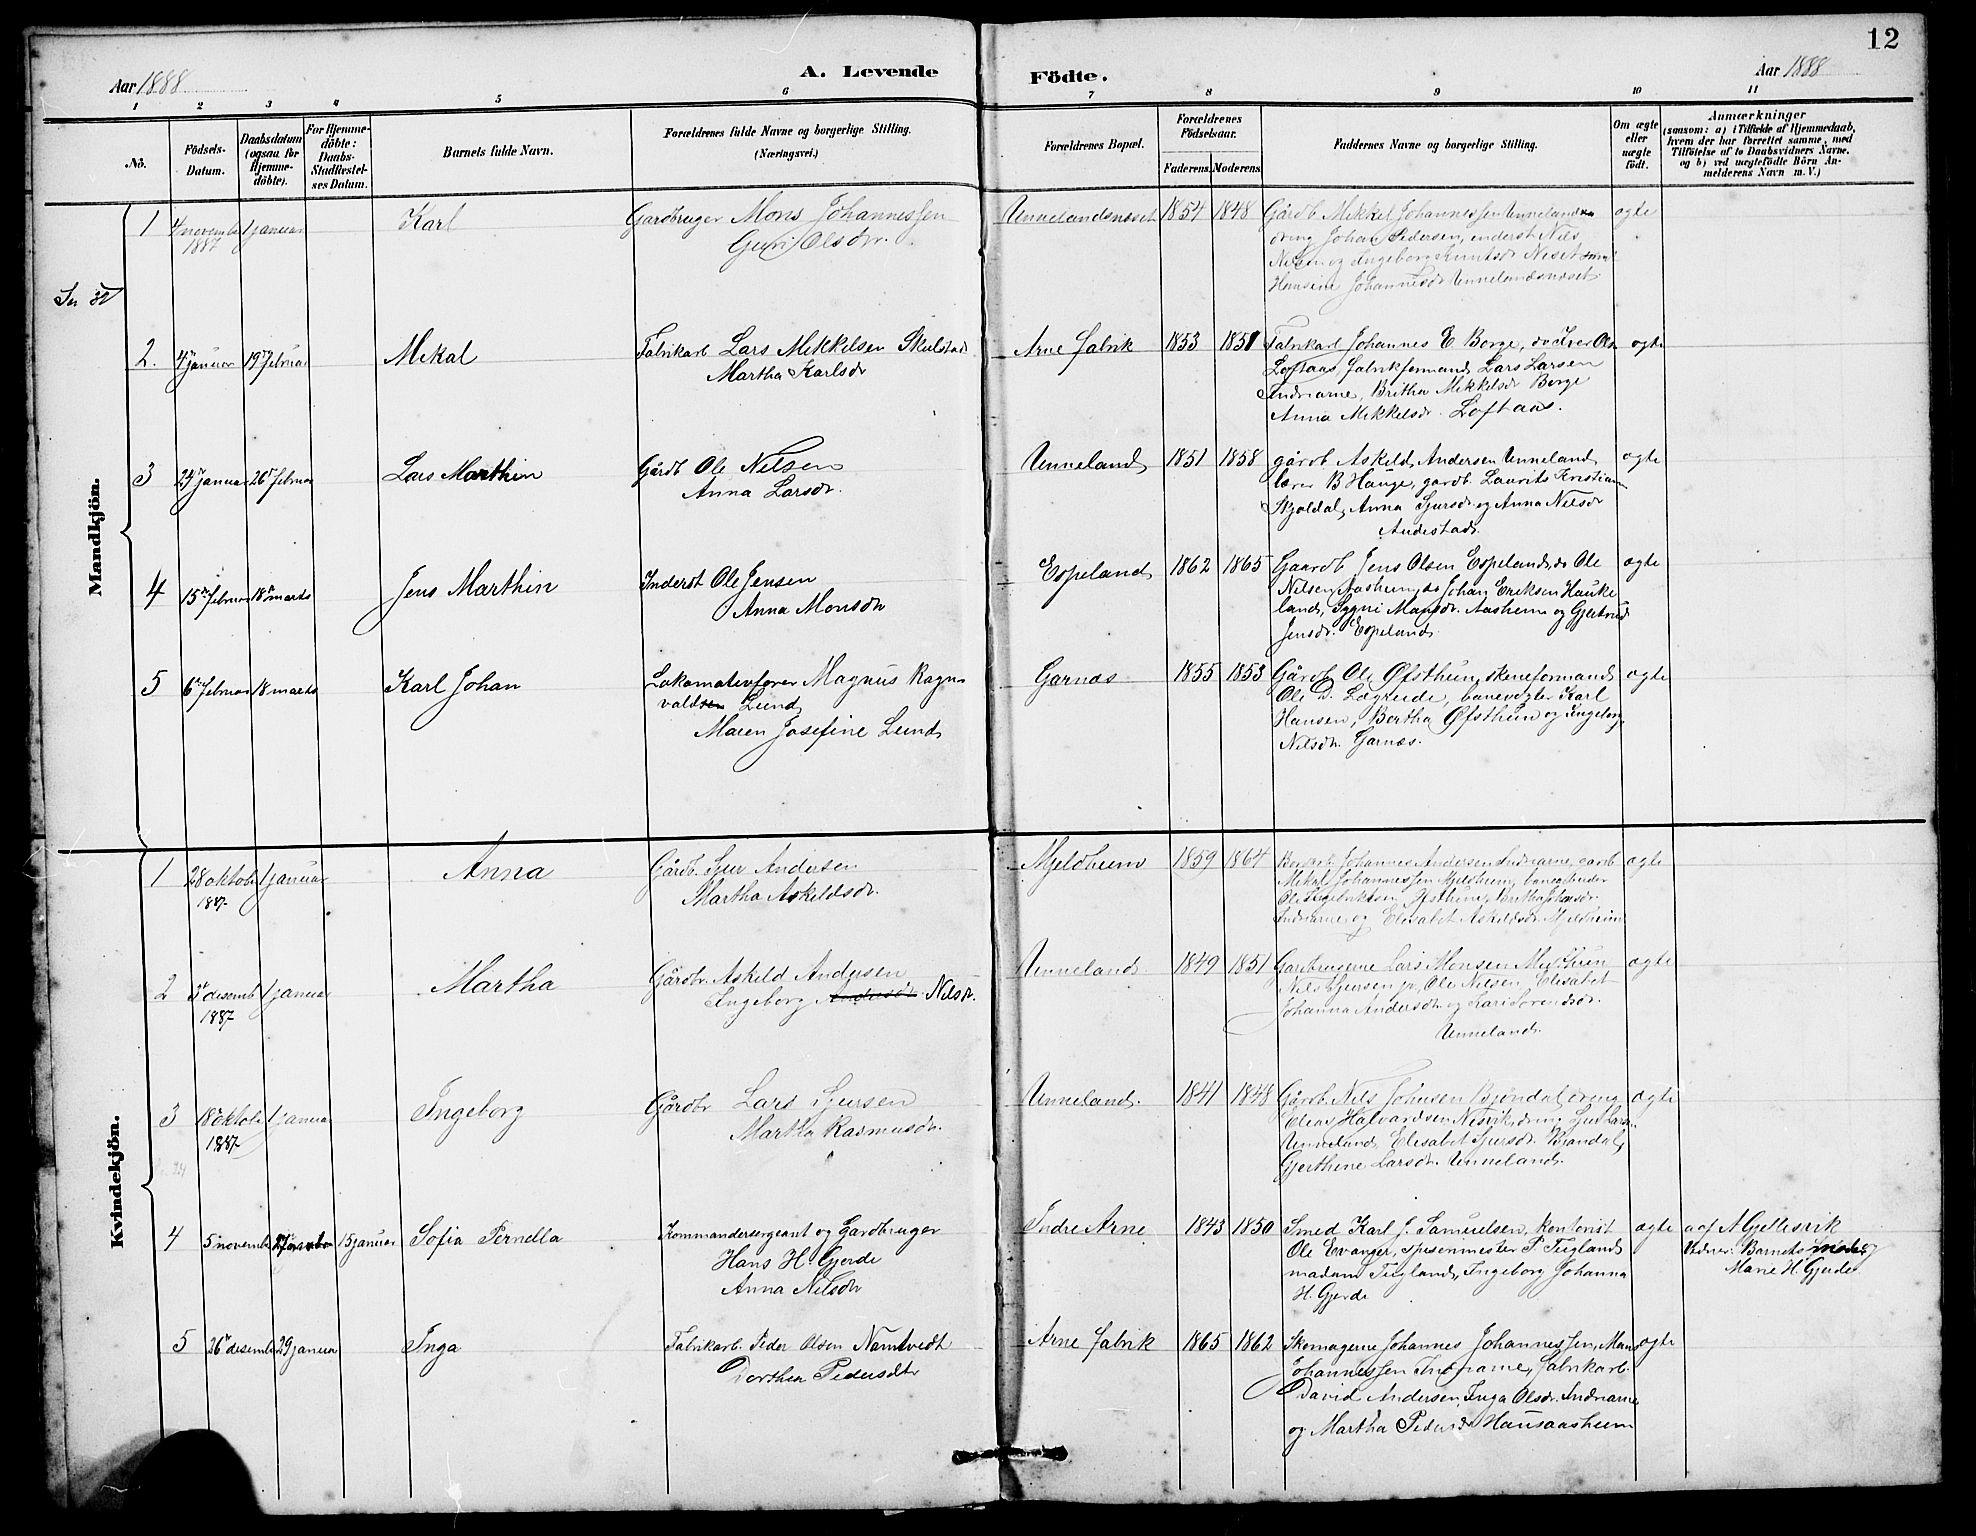 12
Aar 1888
A. Levende
Födte.
Aar 1888
1 2 3 4 5 6 7 8 9 10 11
No.
Födsels-Datum.
Daabsdatum (ogsaa for Hjemme-döbte).
For Hjemme-döbte: Daabs-Stadfæstel-ses Datum.
Barnets fulde Navn.
Forældrenes fulde Navne og borgerlige Stilling.
(Næringsvei.)
Forældrenes Bopæl.
Forældrenes Födselsaar.
Faderens Moderens
Faddernes Navne og borgerlige Stilling.
Om ægte eller uægte födt.
Anmærkninger
(saasom: a) i Tilfælde af Hjemmedaab, hvem der har forrettet samme, med Tilföielse af to Daabsvidners Navne. og b) ved uægtefödte Börn An-melderens Navn m. V.)
Mandkjön.
1 4 november 1887 1 januar Karl
Gardbruger Mons Johannessen
Guri Olsdr.
Unnelandsnæset 1854 1848
Gårdb Mikkel Johannessen Unneland
dreng Johan Pedersen, inderst Nils
Nilsen og Ingeborg Knutsdr Neset
Hansine Johannesdr Unnelandsnæset
ægte
2. 4 januar 19 februar Mekal
Fabrikarb Lars Mikkelsen Skulstad
Martha Karlsdr
Arne fabrik 1853 1851
Fabrikarb Johannes E Borge,
Loftaas, fabrikformand Lars Larsen
Indrearne, Britha Mikkelsdr Borge
Anna Mikkelsdr. Loftaas.
ægte
3 24 januar 26 februar Lars Marthin
Gårdb Ole Nilsen
Anna Larsdr.
Unneland 1851 1858
gårdb Askeld Andersen Unneland
lærer B Hauge, gardb. Laurits Kristian
Skjoldal, Anna Sjursdr og Anna Nilsdr
Andestad.
ægte
4 15 februar 18 marts Jens Marthin
Inderst Ole Jensen
Anna Monsdr
Espeland 1862 1865
Gaardb Jens Olsen Espeland, do Ole
Nilsen Aasheim, do Johan Eriksen Hauke
land, Sygni Monsdr. Aasheim og Gjertrud
Jensdr. Espeland.
ægte
5 6 februar 18 marts Karl Johan
Lokomotivfører Magnus Ragn
vald Lund
Maren Josefine Lund
Garnæs 1855 1853
Gårdb Ole Øfsthun, skeneformand
Ole D. Lægreide, banevogter Karl
Hansen, Bertha Øfsthun og Ingeborg
Nilsdr. Garnæs.
ægte
Kvindekjön.
1 28 oktober 1887 1 januar Anna
Gårdb. Sjur Andersen
Martha Askeldsdr.
Mjeldheim 1859 1864
Johannes Andersen Indrearne, gardb
Mikal Johannessen Mjeldheim, banearbeider
Øfsthun, Britha Johansdr.
Indrearne og Elisabet Askeldsdr Mjeldheim
ægte
2 desemb 1887 1 januar Martha
Gårdbr. Askeld Andersen
Ingeborg Andersdr. Nilsdr.
Unneland 1849 1851
Gardbrugerne Lars Monsen Mjelheim
Nils Sjursen jr, Ole Nilsen, Elisabet
Johanna Andersdr. og
Unneland.
ægte
3 18 oktober 1887 1 januar Ingeborg
Gårdbr Lars Sjursen
Martha Rasmusdr.
Unneland. 1841 1848
Gårdb. Nils Johnsen Bjøndal, dreng
Elias Halvardsen Nesvik, dreng Sjur Larsen
Unneland, Elisabet Sjursdr. Bjøndal,
Gjerthine Larsdr. Unneland.
ægte
4 5 november 27 november 15 januar Sofia Pernella
Kommandersergeant og Gardbruger
Hans H. Gjerde
Anna Nilsdr
Indre Arne 1843 1850
Smed Karl J. Samuelsen, kontorist
Ole Evanger, spisemester P. Fugland
madam Fugland, Ingeborg Johanna
H. Gjerde
ægte
a af M Gjellesvik
Vidner: Barnets moder og
Marie H. Gjerde
5 26 desemb 29 januar Inga
Fabrikarb. Peder Olsen Namtvedt
Dorthea Pedersdtr
Arne fabrik 1865 1862
Skomagerne Johannes Johannessen, Mons
Johannessen Indrearne, fabrikarb.
David Andersen, Inga Olsdr. Indrearne
og Martha Pedersdr Hausaasheim
ægte